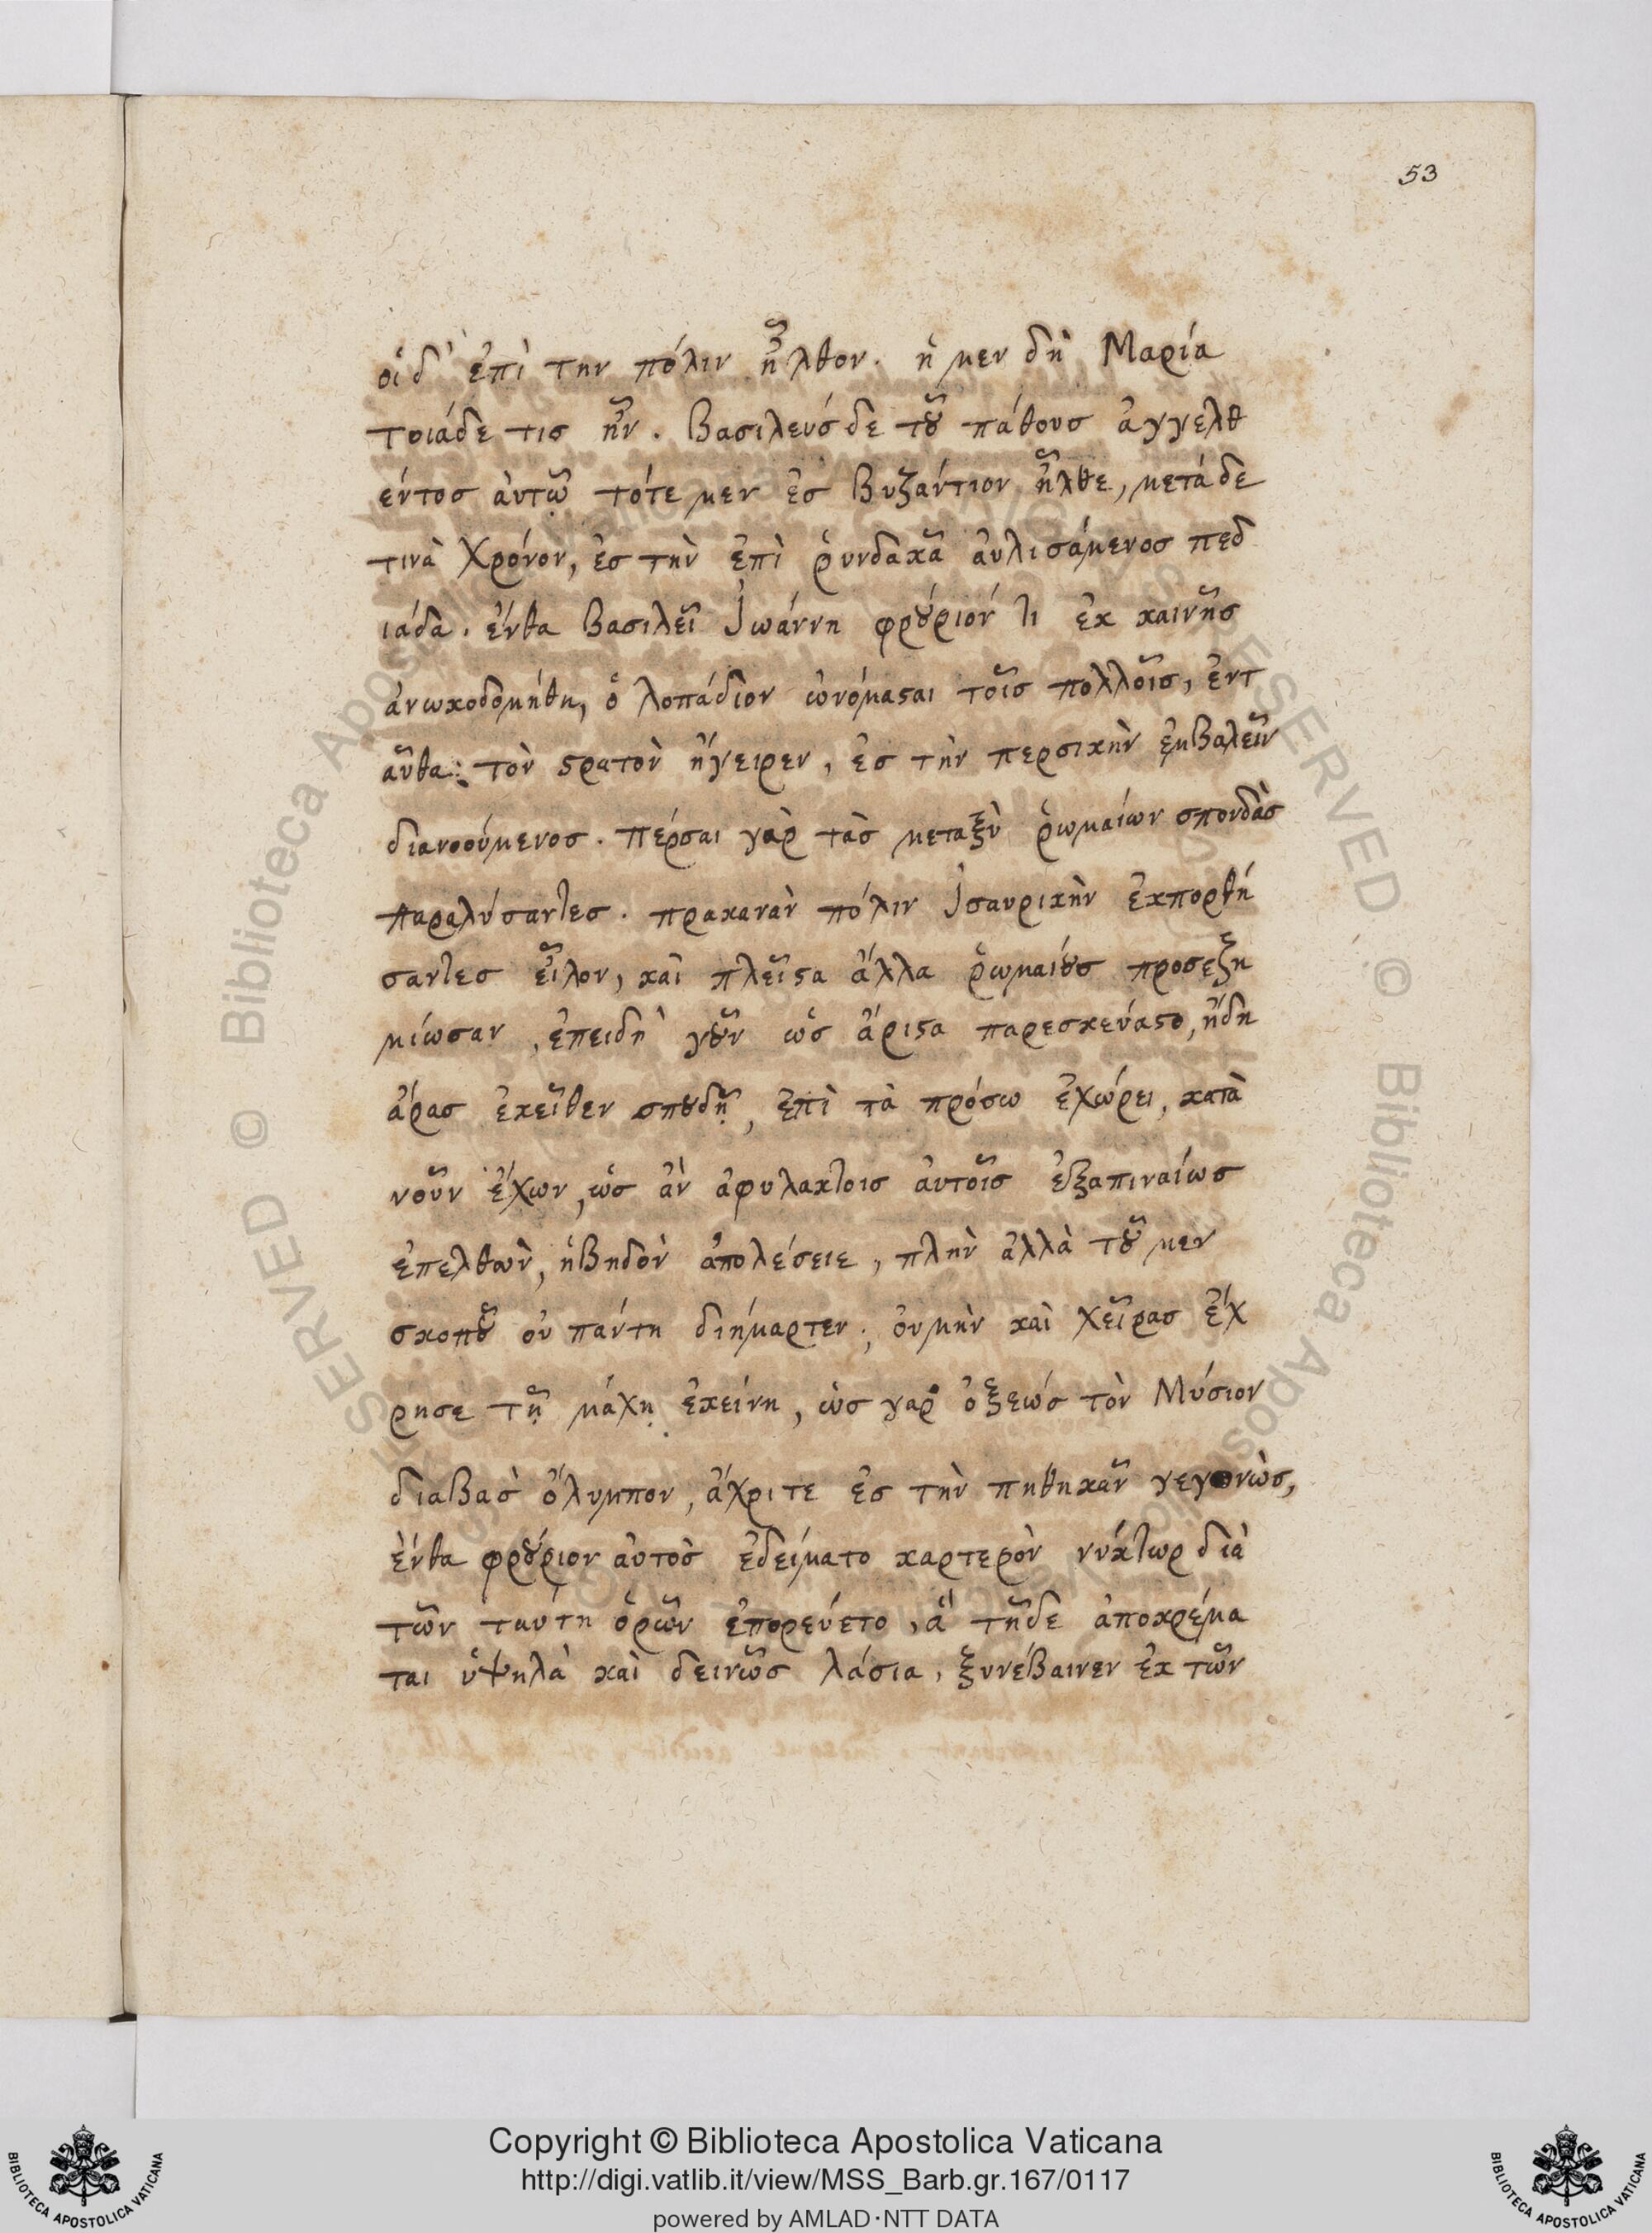 53
οἱ δ' ἐπὶ την πόλιν ἦλθον. ἡ μεν δὴ Μαρία
τοιάδε τις ἦν. Βασιλεύς δε τȣ͂ πάθους ἀγγελθ
έντος ἀυτῷ τότε μεν ἐς Βυζάντιον ἦλθε, μετά δε
τινὰ χρόνον, ἐς τὴν ἐπὶ ῥυνδακᾶ ἀυλισάμενος πεδ
ιάδα. ἔνθα βασιλεῖ Ἰωάννη φρȣ́ριόν τι ἐκ καινῆς
ἀνωκοδομήθη, ὁ λοπάδιον ὠνόμαϛαι τοῖς πολλοῖς, ἐντ
αῦθα: τὸν ϛρατὸν ἤγειρεν, ἐς τὴν περσικὴν ἐμβαλεῖν
διανοούμενος. Πέρσαι γὰρ τὰς μεταξὺ ῥωμαίων σπονδὰς
παραλύσαντες. πρακανὰν πόλιν Ἰσαυρικὴν ἐκπορθή
σαντες εἷλον, καὶ πλεῖϛα ἄλλα ῥωμαίȣς προσεζη
μίωσαν, ἐπειδὴ γȣ͂ν ὡς ἄριϛα παρεσκεύαϛο, ἤδη
ἄρας ἐκεῖθεν σπȣδῇ, ἐπὶ τὰ πρόσω ἐχώρει, κατὰ
νοῦν ἔχων, ὡς ἂν ἀφυλακτοις ἀυτοῖς ἐξαπιναίως
ἐπελθὼν, ἡβηδὸν ἀπολέσειε, πλὴν ἀλλὰ τȣ͂ μεν
σκοπȣ͂ ου πάντη διήμαρτεν., ȯυμὴν καὶ χεῖρας ἔχ
ρησε τῇ μάχῃ ἐκείνη, ὡς γαρ ὀξεώς τὸν Μύσιον
διαβὰς ὄλυμπον, ἄχρι τε ἐς τὴν πηθηκᾶν γεγονὼς,
ἔνθα φρȣ́ριον ἀυτὸς ἐδείματο καρτερὸν νύκτωρ διὰ
τῶν ταύτη ὀρῶν ἐπορεύετο, ἃ τῇδε ἀποκρέμα
ται ὑψηλὰ καὶ δεινῶς λάσια, ξυνέβαινεν ἐκ τῶν
Copyright © Biblioteca Apostolica Vaticana
http://digi.vatlib.it/view/MSS_Barb.gr.167/0117
powered by AMLAD·NTT DATA